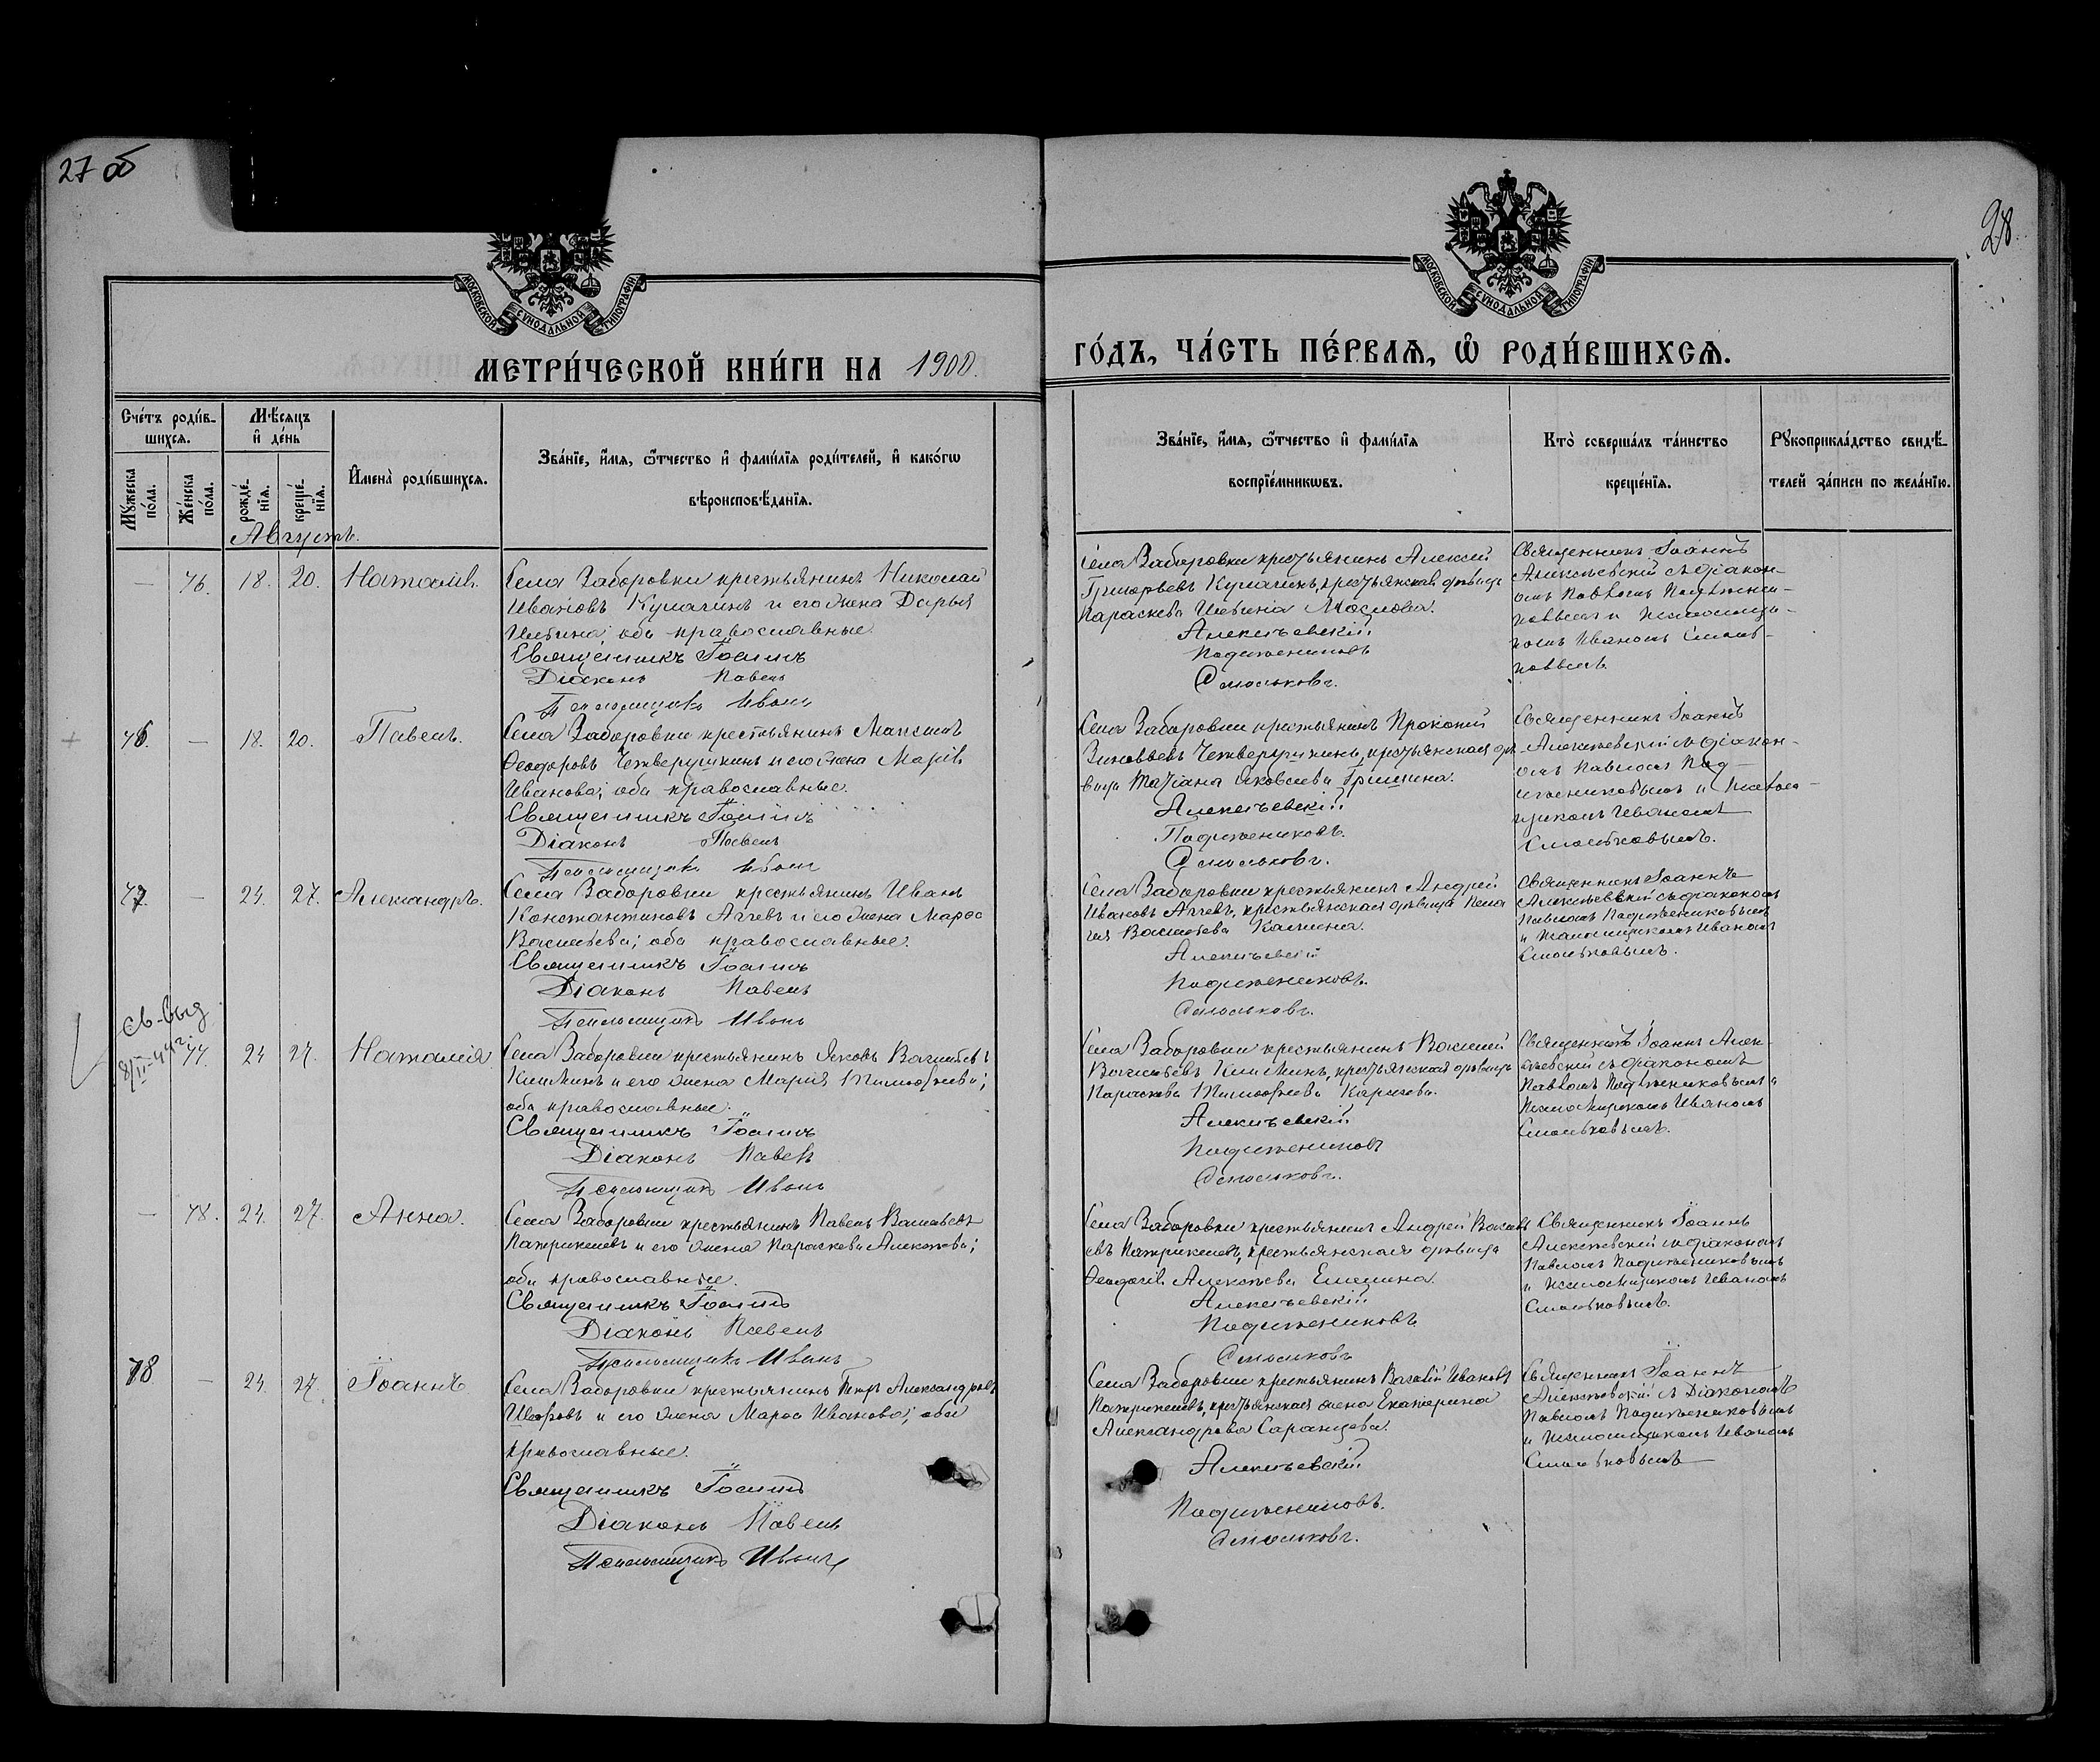 27 об
28
МОСКОВСКОЙ СУНОДАЛЬНОЙ ТИПОГРАФІИ
МОСКОВСКОЙ СУНОДАЛЬНОЙ ТИПОГРАФІИ
МЕТРИ́ЧЕСКОЙ КНИ́ГИ НА 1900.
ГО́ДЪ, ЧА́СТЬ ПЕ́РВАѦ, Ѡ҆ РОДИ́ВШИХСѦ.
Сче́тъ роди́в-
шихсѧ.
Мꙋжеска по́ла.
Же́нска по́ла.
Мѣ́сѧцъ
и҆ де́нь
рожде́-
нїѧ.
креще́-
нїѧ.
И҆мена̀ роди́вшихсѧ.
Зва́нїе, и҆́мѧ, ѻ҆́тчество и҆ фами́лїѧ роди́телей, и҆ како́гѡ
вѣроисповѣ́данїѧ.
Зва́нїе, и҆́мѧ, ѻ҆́тчество и҆ фами́лїѧ
воспрїе́мникѡвъ.
Кто̀ соверша́лъ та́инство
креще́нїѧ.
Рꙋкоприкла́дство свидѣ́-
телей за́писи по жела́нїю.
Августъ.
— 76. 18. 20. Наталія.
Села Заборовки крестьянинъ Николай
Ивановъ Кулагинъ и его жена Дарья
оба православные.
Священникъ Іоаннъ
Діаконъ Павелъ
Псаломщикъ Иванъ
Села Заборовки крестьянинъ Алексей
Григорьевъ Кулагинъ, крестьянская дѣвица
Параскева
Алексѣевскій
Смольковъ.
Священникъ Іоаннъ
Алексѣевскій съ діакон-
омъ Павломъ
Иваномъ Смоль-
ковымъ.
76. — 18. 20. Павелъ.
Села Заборовки крестьянинъ Максимъ
Ѳеодоровъ Четверушкинъ и его жена Марія
Иванова; оба православные.
Священникъ Іоаннъ
Діаконъ Павелъ
Псаломщикъ Иванъ
Села Заборовки крестьянинъ Прокопій
Зиновьевъ Четверушкинъ, крестьянская дѣ-
вица Татіана Яковлева Гришина.
Алексѣевскій
Смольковъ.
Священникъ Іоаннъ
Алексѣевскій съ діакон-
омъ Павломъ
Иваномъ
Смольковымъ.
77. — 24. 27. Александръ.
Села Заборовки крестьянинъ Иванъ
Константиновъ Агѣевъ и его жена Марѳа
Васильева; оба православные.
Священникъ Іоаннъ
Діаконъ Павелъ
Псаломщикъ Иванъ
Села Заборовки крестьянинъ Андрей
Ивановъ Агѣевъ, крестьянская дѣвица Пела
гея Васильева Калинина.
Алексѣевскій
Смольковъ.
Священникъ Іоаннъ
Алексѣевскій съ діакономъ
Павломъ
и псаломщикомъ Иваномъ
Смольковымъ.
77. 24 27. Наталія
Села Заборовки крестьянинъ Яковъ Васильевъ
и его жена Марія Тимоѳеева;
оба православные.
Священникъ Іоаннъ
Діаконъ Павелъ
Псаломщикъ Иванъ
Села Заборовки крестьянинъ Василій
Васильевъ крестьянская дѣвица
Параскева Тимоѳеева
Алексѣевскій
Смольковъ.
Священникъ Іоаннъ Алек-
сѣевскій съ діакономъ
Павломъ
псаломщикомъ Иваномъ
Смольковымъ.
— 78. 24. 27. Анна.
Села Заборовки крестьянинъ Павелъ Васильевъ
Патрикеевъ и его жена Параскева Алексѣева;
оба православные.
Священникъ Іоаннъ
Діаконъ Павелъ
Псаломщикъ Иванъ
Села Заборовки крестьянинъ Андрей Василь
евъ Патрикеевъ, крестьянская дѣвица
Алексѣева
Алексѣевскій
Смольковъ
Священникъ Іоаннъ
Алексѣевскій съ діакономъ
Павломъ
и псаломщикомъ Иваномъ
Смольковымъ.
78 — 24. 27. Іоаннъ
Села Заборовки крестьянинъ Петръ Александровъ
и его жена Марѳа Иванова; оба
православные.
Священникъ Іоаннъ
Діаконъ Павелъ
Псаломщикъ Иванъ
Села Заборовки крестьянинъ Василій Ивановъ
Патрикеевъ, крестьянская жена Екатерина
Александрова Саранцева.
Алексѣевскій
Смольковъ.
Священникъ Іоаннъ
Алексѣевскій съ Діакономъ
Павломъ
и псаломщикомъ Иваномъ
Смольковымъ